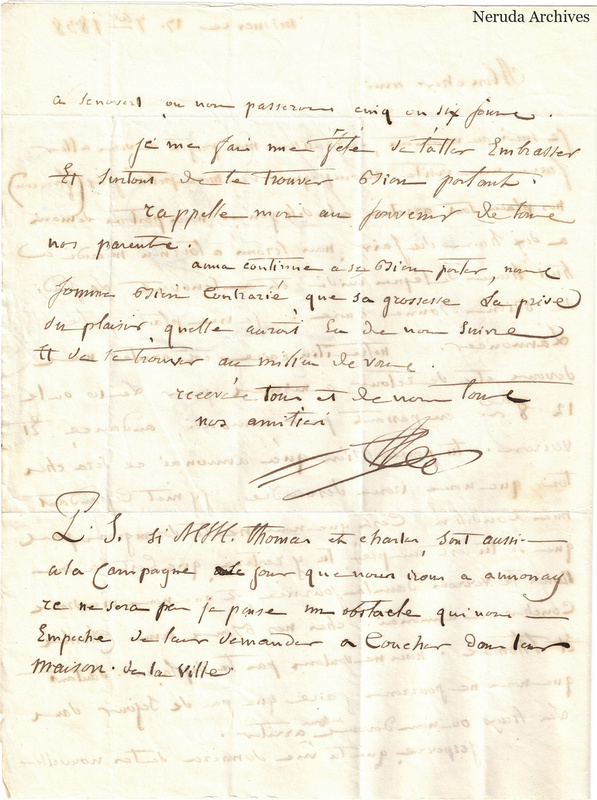 Neruda Archives
a ou nous passerons cinq ou six jours.
je me fais une fête de t'aller Embrasser
Et surtout de te trouver Bien portant.
rappelle moi au souvenir de tous
nos parents.
anna continue a se Bien porter, nous
somme Bien Contrarié que sa grossesse La prive
du plaisir quelle auroit Eu de nous suivre
Et de se trouver au milieu de vous.
recevés tous et de nous tous
nos amitiés
P. S. si MM. thomas et charles sont aussi
a la Campagne le jour que nous irons a annonay
ce ne sera pas je pense un obstacle qui nous
Empeche de leur demander a Coucher dans leur
maison de la ville.